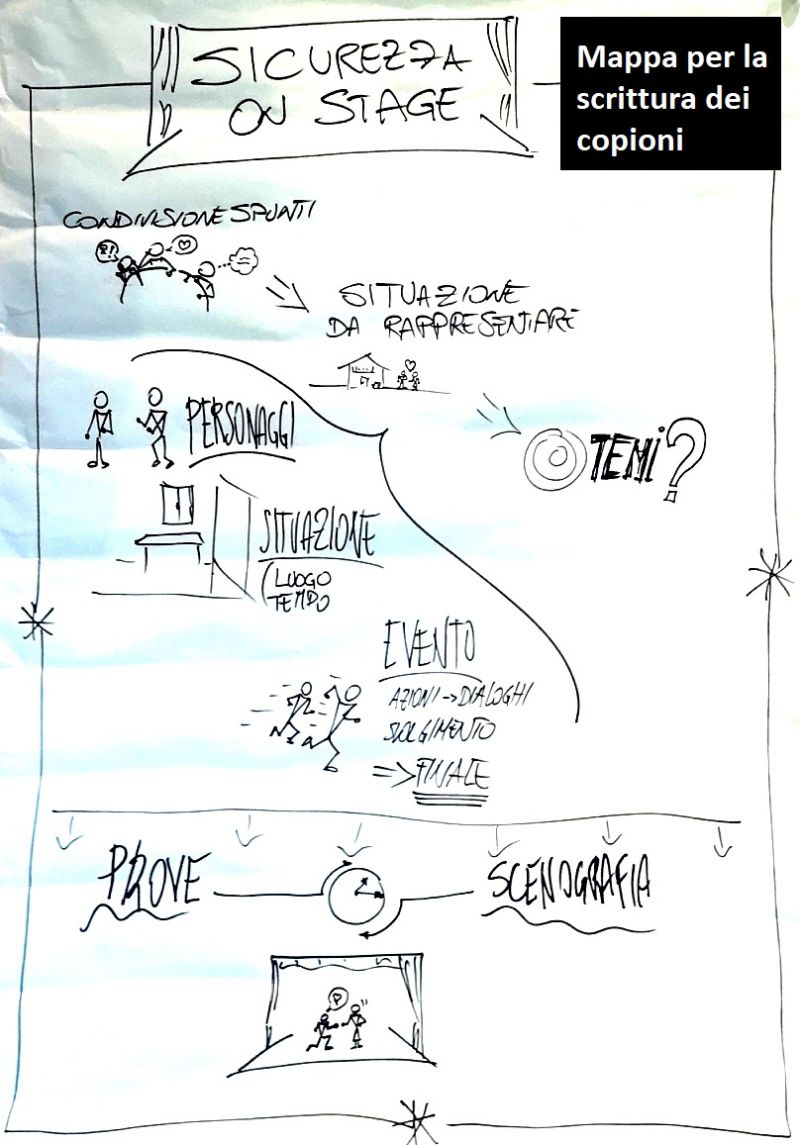 SICUREZZA
ON STAGE
Mappa per la
scrittura dei
copioni
CONDIVISIONE SPUNTI
?!
SITUAZIONE
DA RAPPRESENTARE
PERSONAGGI
TEMI?
SITUAZIONE
(LUOGO
TEMPO
EVENTO
AZIONI → DIALOGHI
SVOLGIMENTO
=> FINALE
PROVE
SCENOGRAFIA